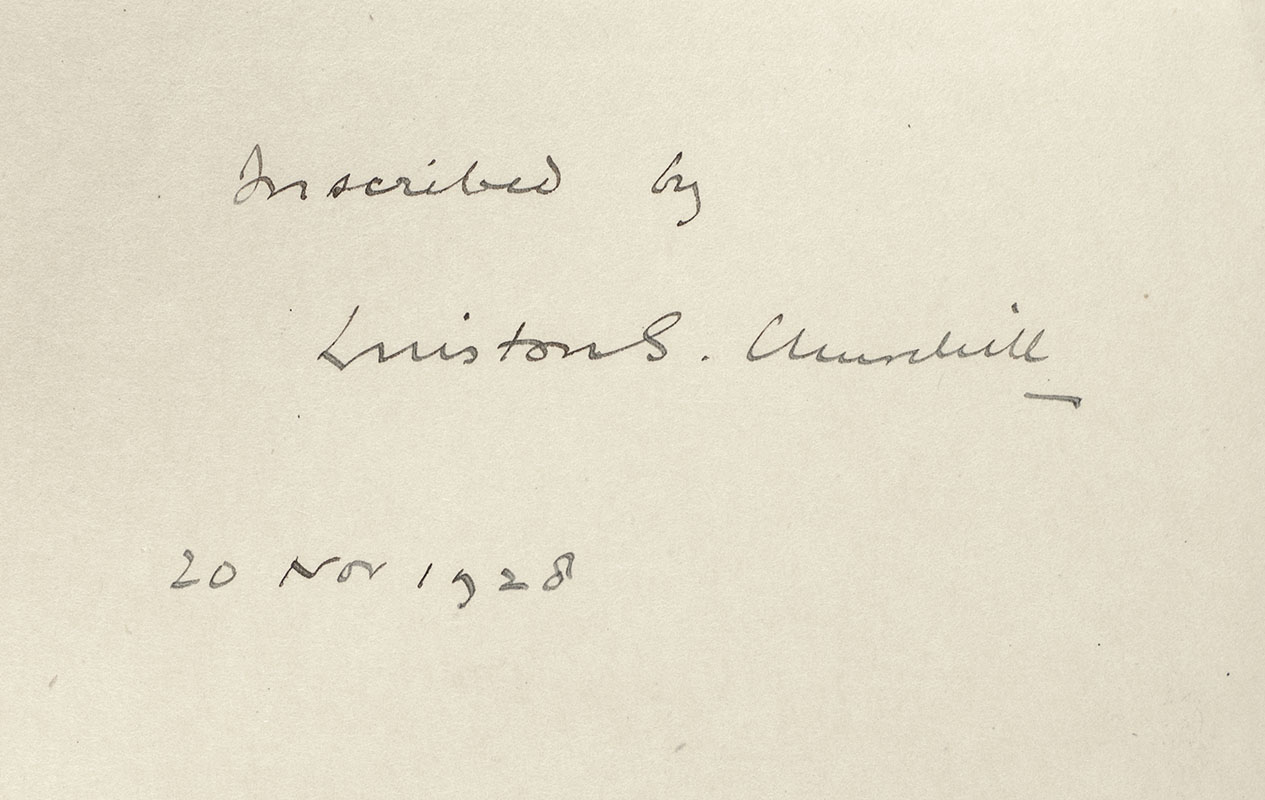 Inscribed by
Winston S. Churchill
20 Nov 1928